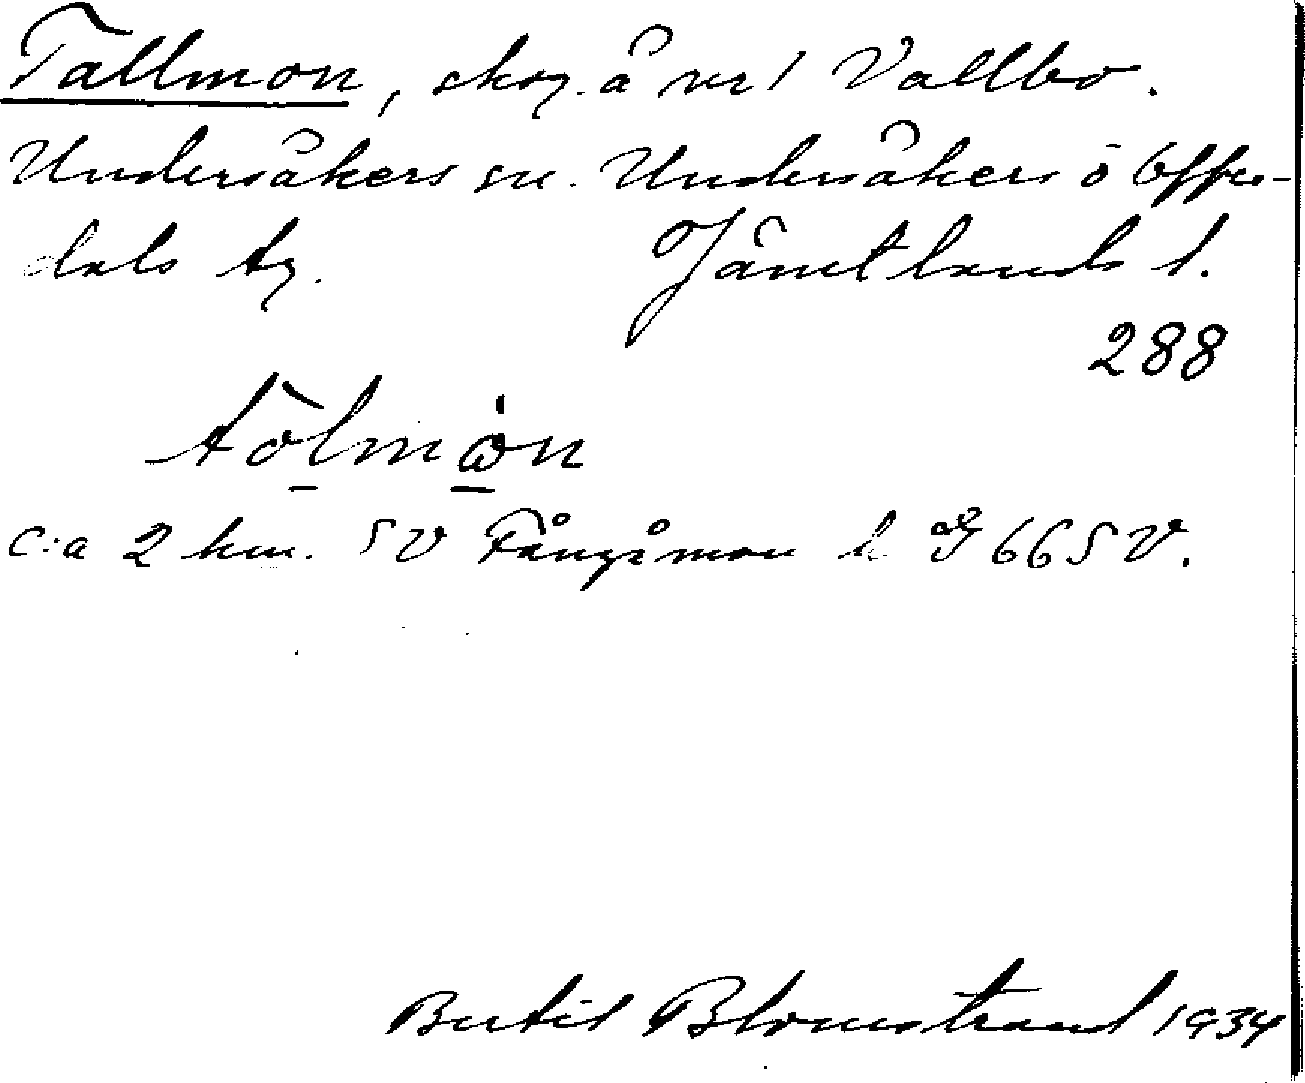 Tallmon, skog å nr 1 Vallbo.
Undersåkers sn. Undersåkers o Offer-
dals tg. Jämtlands l.
288
tölmòn
c:a 2 km. SV Fångåmon k G 66 SV.
Bertil Blomstrand 1934